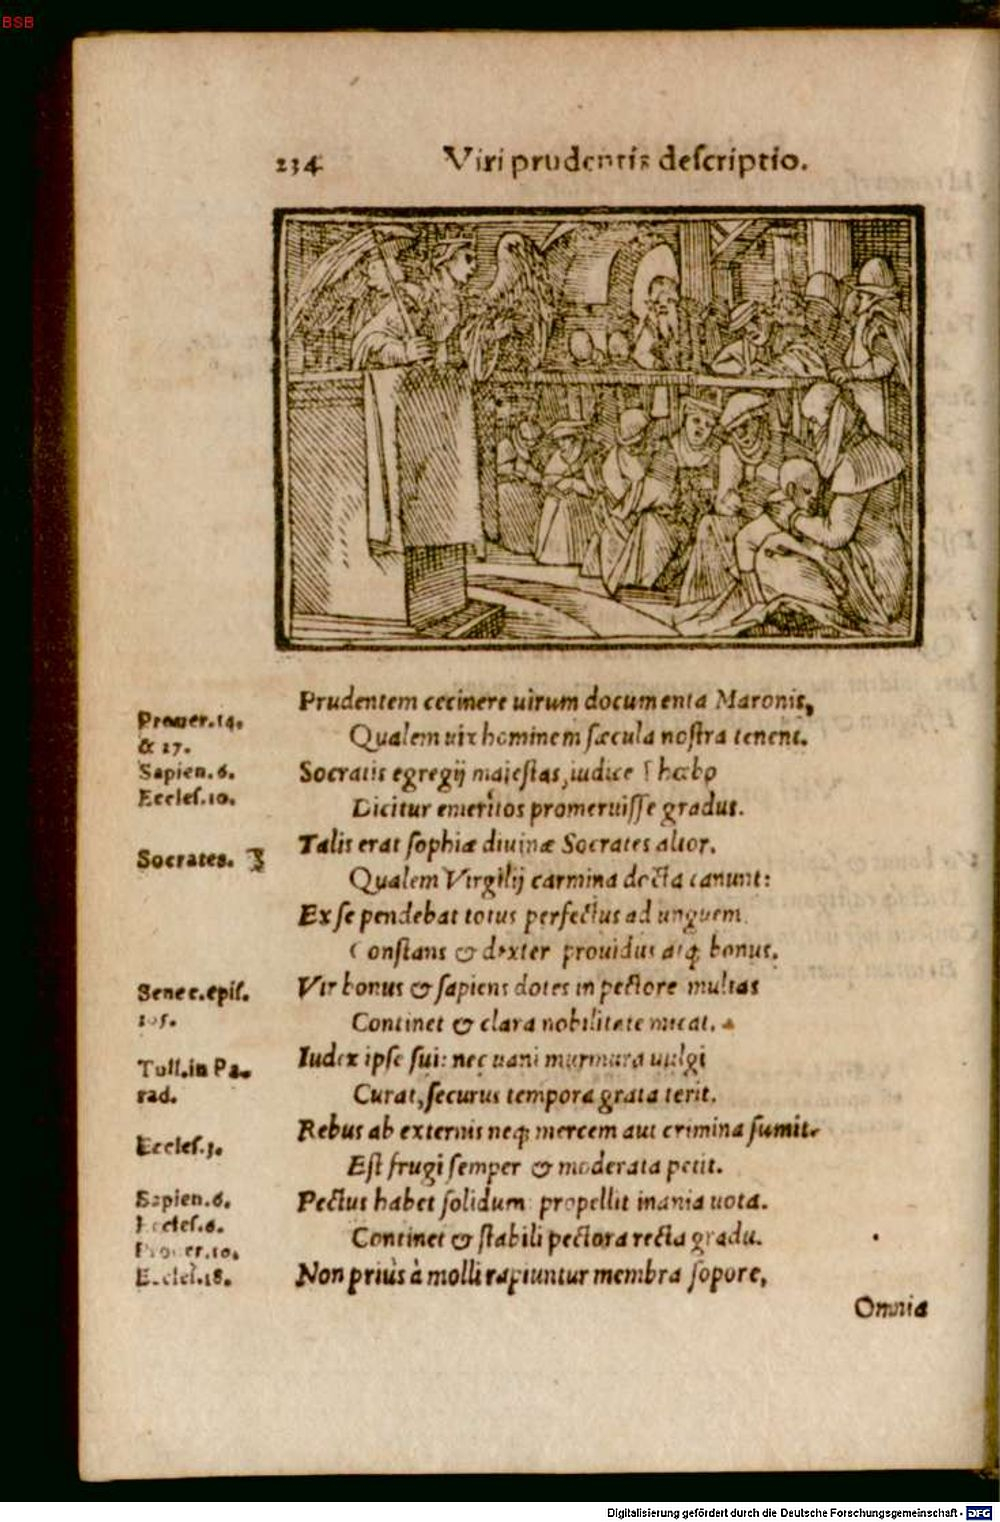 BSB
234 Viri prudentis descriptio.
Prudentem cecinere uirum documenta Maronis,
Prouer.14.
Qualem uix hominem sæcula nostra tenent.
& 17.
Socratis egregij maiestas, iudice Phœbo
Sapien.6.
Eccles.10.
Dicitur emeritos promeruisse gradus.
Talis erat sophiæ diuinæ Socrates altor,
Socrates.
Qualem Virgilij carmina docta canunt:
Ex se pendebat totus perfectus ad unguem
Constans & dexter prouidus atq; bonus.
Vir bonus & sapiens dotes in pectore multas
Senec.epis.
105.
Continet & clara nobilitate micat.
Iudex ipse sui: nec uani murmura uulgi
Tull.in Pa.
rad.
Curat, securus tempora grata terit.
Rebus ab externis neq; mercem aut crimina sumit.
Eccles.3.
Est frugi semper & moderata petit.
Pectus habet solidum: propellit inania uota.
Sapien.6.
Eccles.6.
Continet & stabili pectora recta gradu.
Prouer.10.
Non prius à molli rapiuntur membra sopore,
Eccles.18.
Omnia
Digitalisierung gefördert durch die Deutsche Forschungsgemeinschaft - DFG